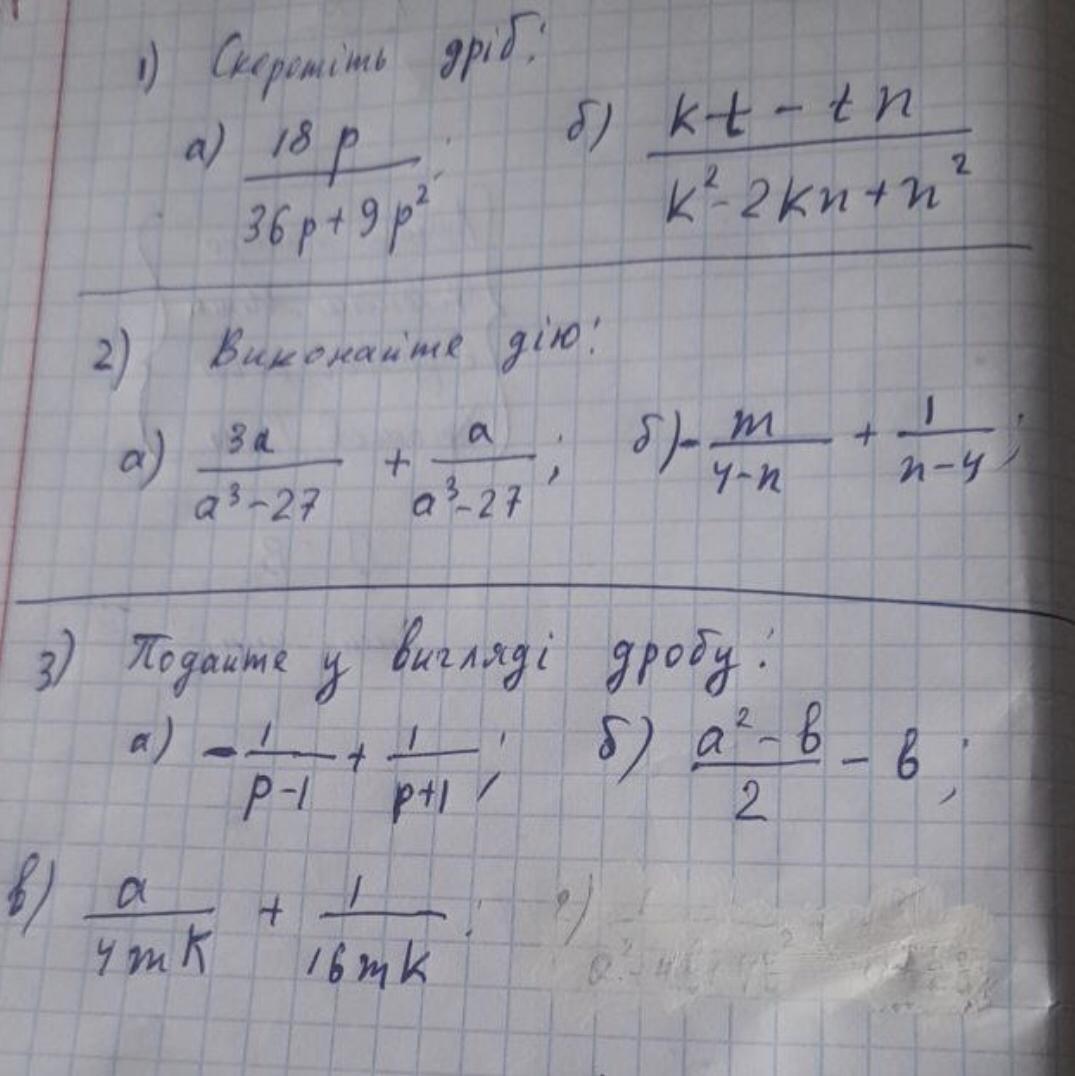 1) Скоротіть дріб:
а) 18p / (36p + 9p²); б) (kt - tn) / (k² - 2kn + n²)
2) Виконайте дію:
а) 3a / (a³ - 27) + a / (a³ - 27); б) - m / (4 - n) + 1 / (n - 4);
3) Подайте у вигляді дробу:
а) - 1 / (p - 1) + 1 / (p + 1); б) (a² - b) / 2 - b;
в) a / (4mk) + 1 / (16mk);